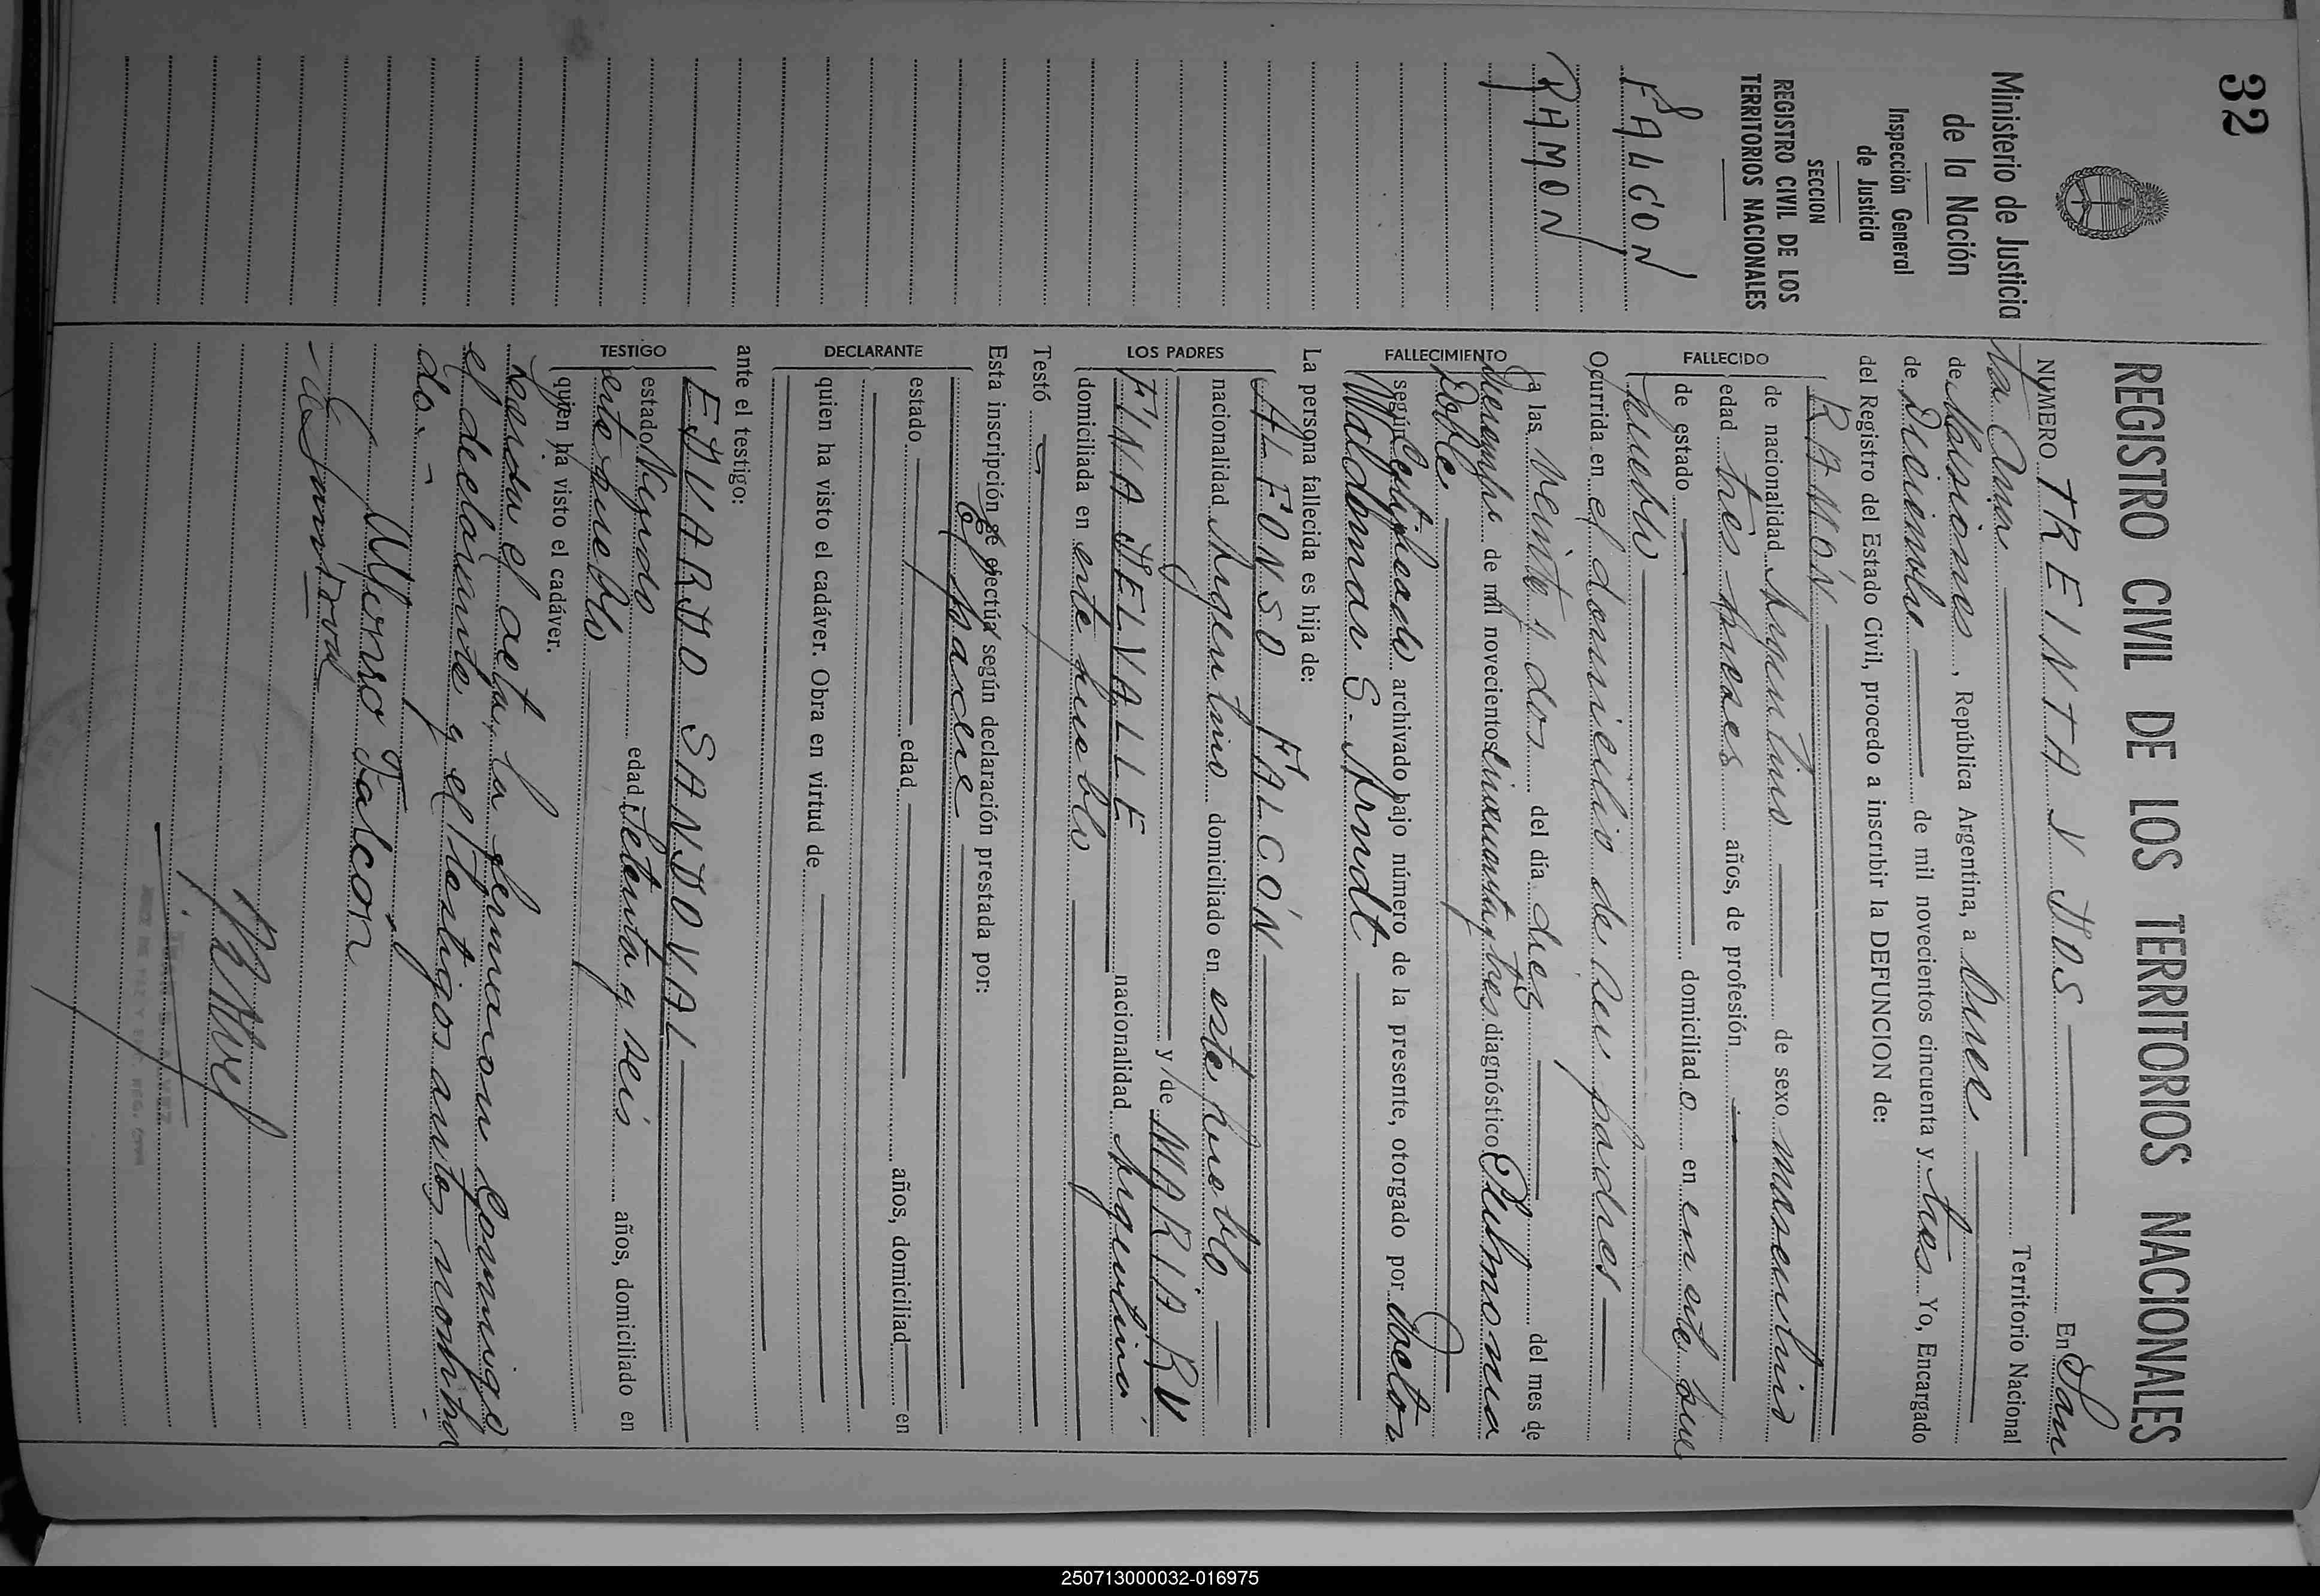 32
Ministerio de Justicia
de la Nación
Inspección General
de Justicia
SECCION
REGISTRO CIVIL DE LOS
TERRITORIOS NACIONALES
FALCON
RAMON
REGISTRO CIVIL DE LOS TERRITORIOS NACIONALES
NUMERO TREINTA Y DOS En San
ta Ana Territorio Nacional
de Misiones, República Argentina, a Once
de Diciembre de mil novecientos cincuenta y tres Yo, Encargado
del Registro del Estado Civil, procedo a inscribir la DEFUNCION de:
RAMÓN
FALLECIDO
de nacionalidad Argentino de sexo masculino
edad tres meses años, de profesión
de estado domiciliado en en este pue
pueblo
Ocurrida en el domicilio de sus padres
FALLECIMIENTO
a las veinte y dos del día diez del mes de
Diciembre de mil novecientos cincuenta y tres diagnóstico Pulmonia
Doble
según Certificado archivado bajo número de la presente, otorgado por doctor
Waldemar S. Arndt
La persona fallecida es hija de:
ALFONSO FALCÓN
LOS PADRES
nacionalidad Argentino domiciliado en este pueblo
y de MARIA RU
FINA DELVALLE nacionalidad Argentina
domiciliada en este pueblo
Testó
Esta inscripción se efectúa según declaración prestada por:
El padre
DECLARANTE
estado edad años, domiciliad en
quien ha visto el cadáver. Obra en virtud de
ante el testigo:
EDUARDO SANDOVAL
TESTIGO
estado Viudo edad Setenta y seis años, domiciliado en
este pueblo
quien ha visto el cadáver.
Leida el acta, la firmaron conmigo
el declarante y el testigos antes nombra
do.-
Alfonso Falcón
Sandoval
JUEZ DE PAZ Y ENC. REG. CIVIL
250713000032-016975